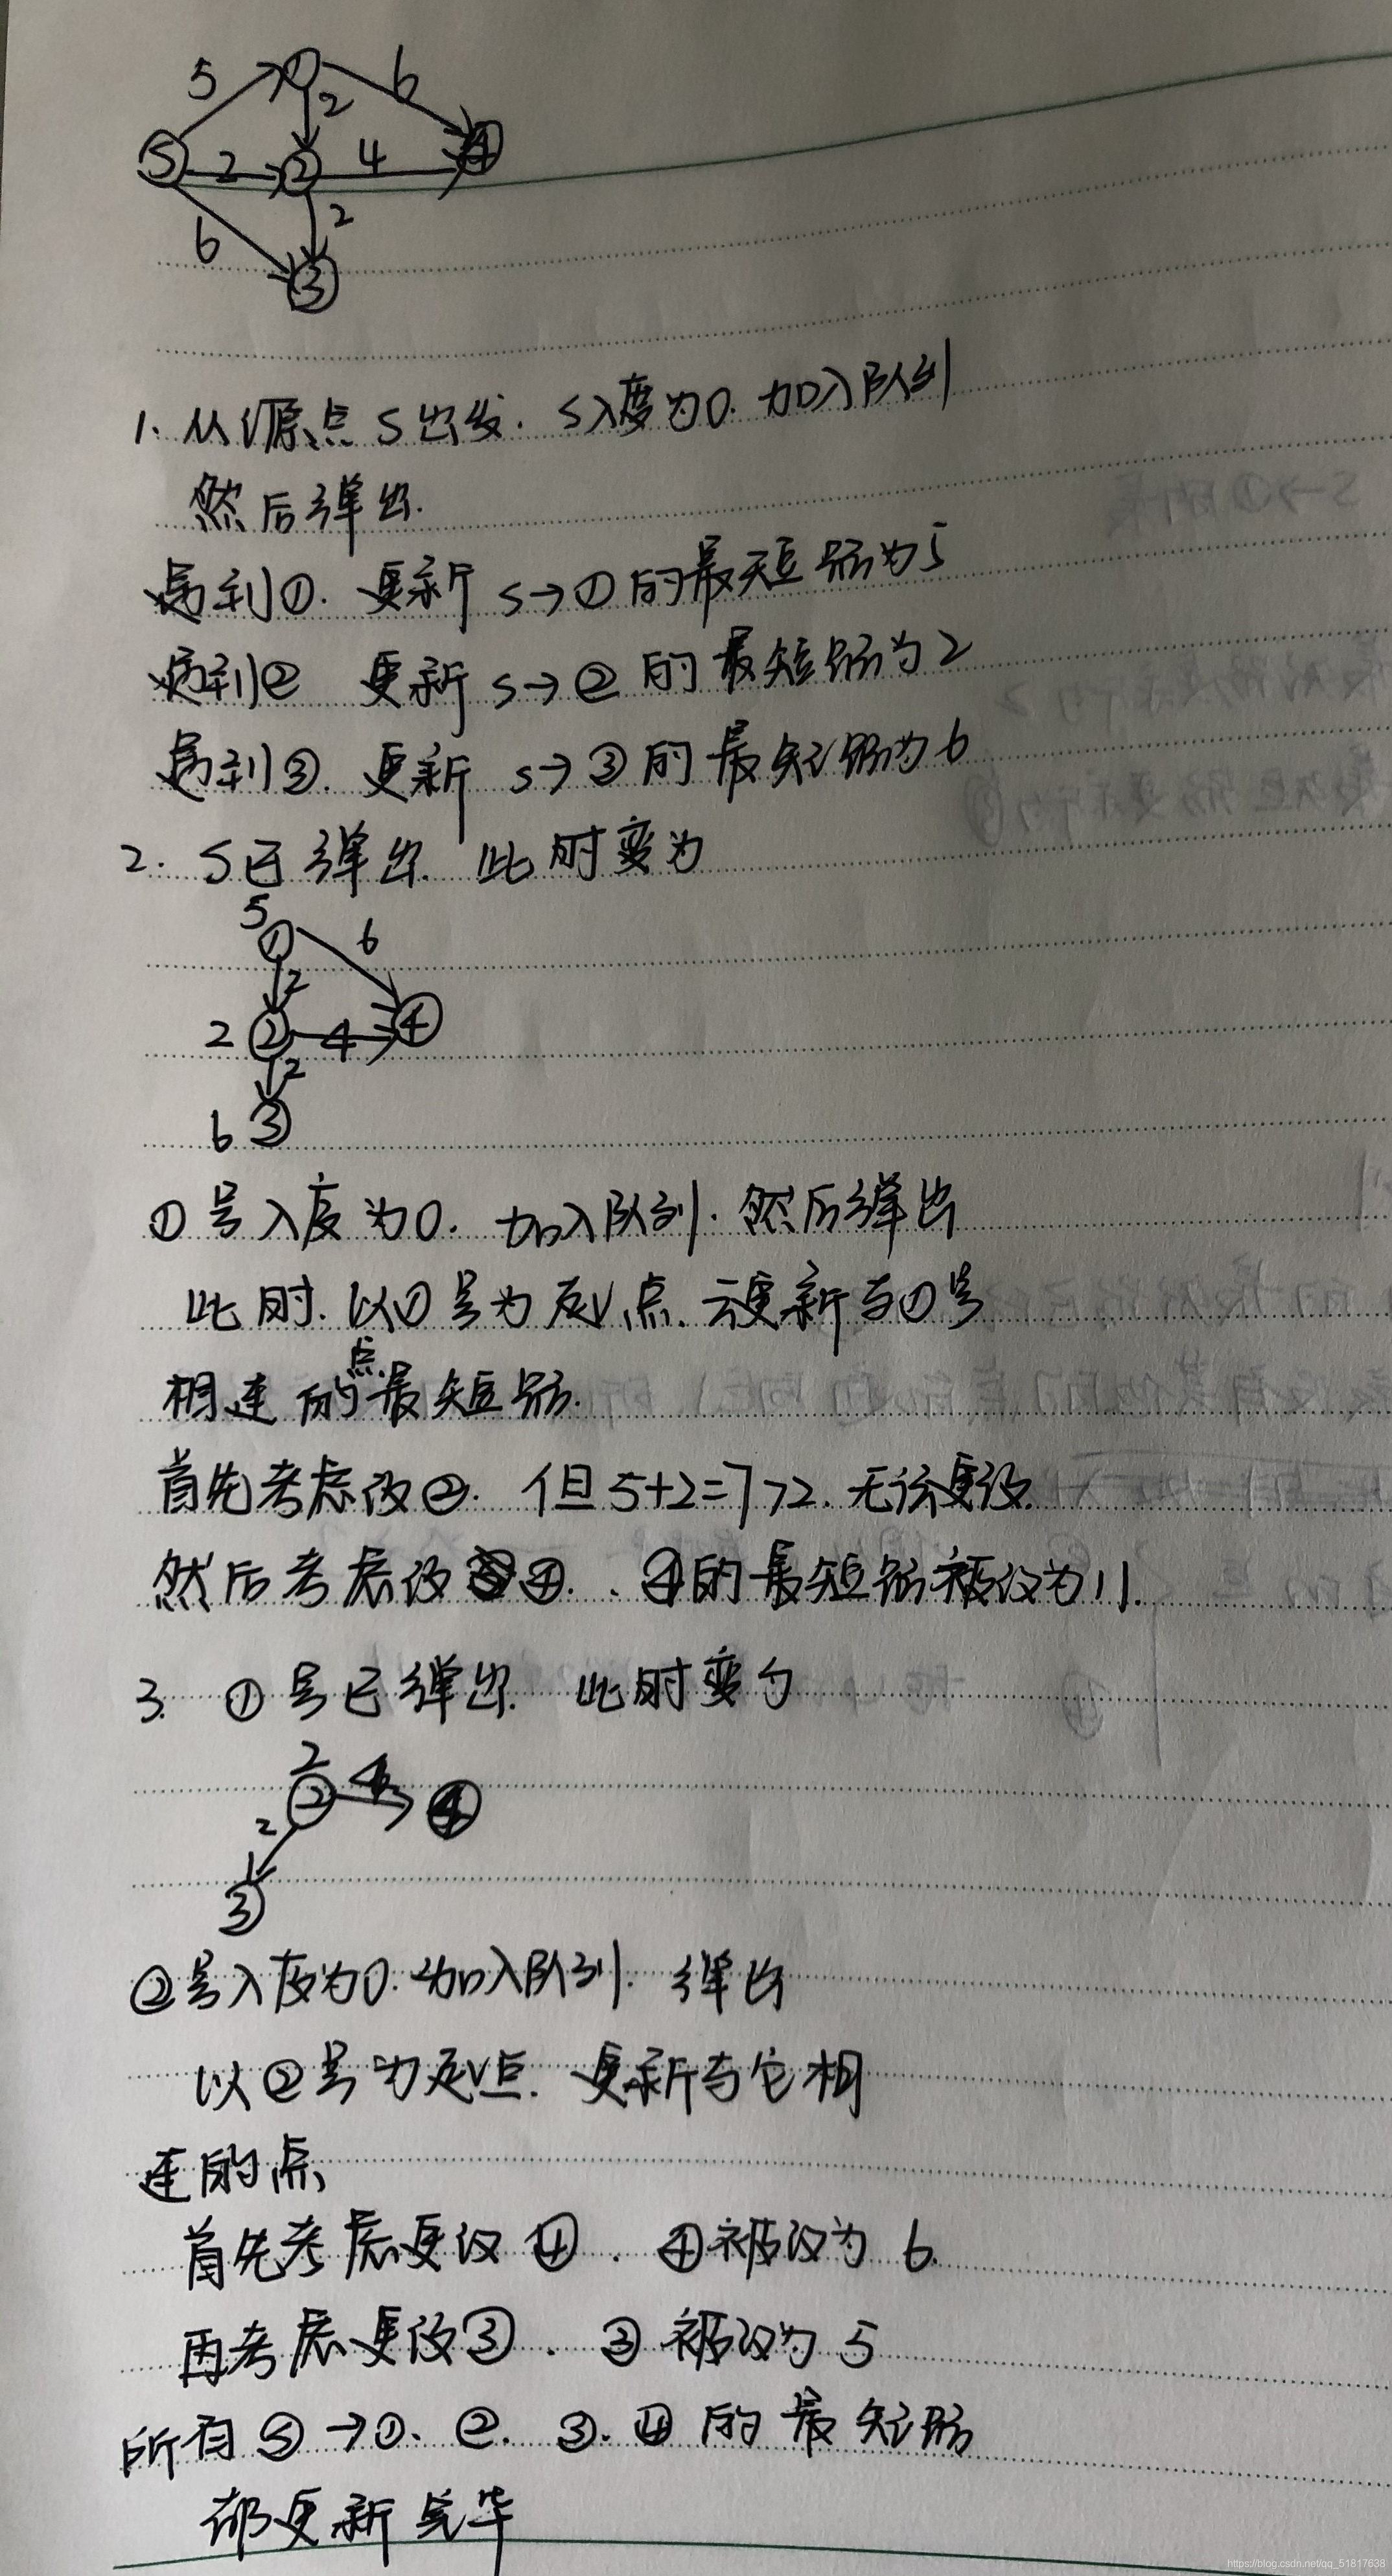 5 ① 6
2
S 2 ② 4 ④
2
6
③
1. 从源点 S 出发. S入度为0. 加入队列
然后弹出.
遇到①. 更新 S→①的最短路为5
遇到② 更新 S→②的最短路为2
遇到③. 更新 S→③的最短路为6
2. S已弹出. 此时变为
5 ① 6
2
2 ② 4 ④
2
6 ③
①号入度为0. 加入队列. 然后弹出
此时. 以①号为起点. 去更新与①号
相连的点最短路.
首先考虑改②. 但5+2=7>2. 无法更改.
然后考虑改④. ④的最短路被改为11.
3. ①号已弹出. 此时变为
2 ② 4 ④
2
③
②号入度为0. 加入队列. 弹出
以②号为起点. 更新与它相
连的点
首先考虑更改④. ④被改为 6.
再考虑更改③. ③被改为 5
所有Ⓢ→①. ②. ③. ④的最短路
都更新完毕
https://blog.csdn.net/qq_51817638